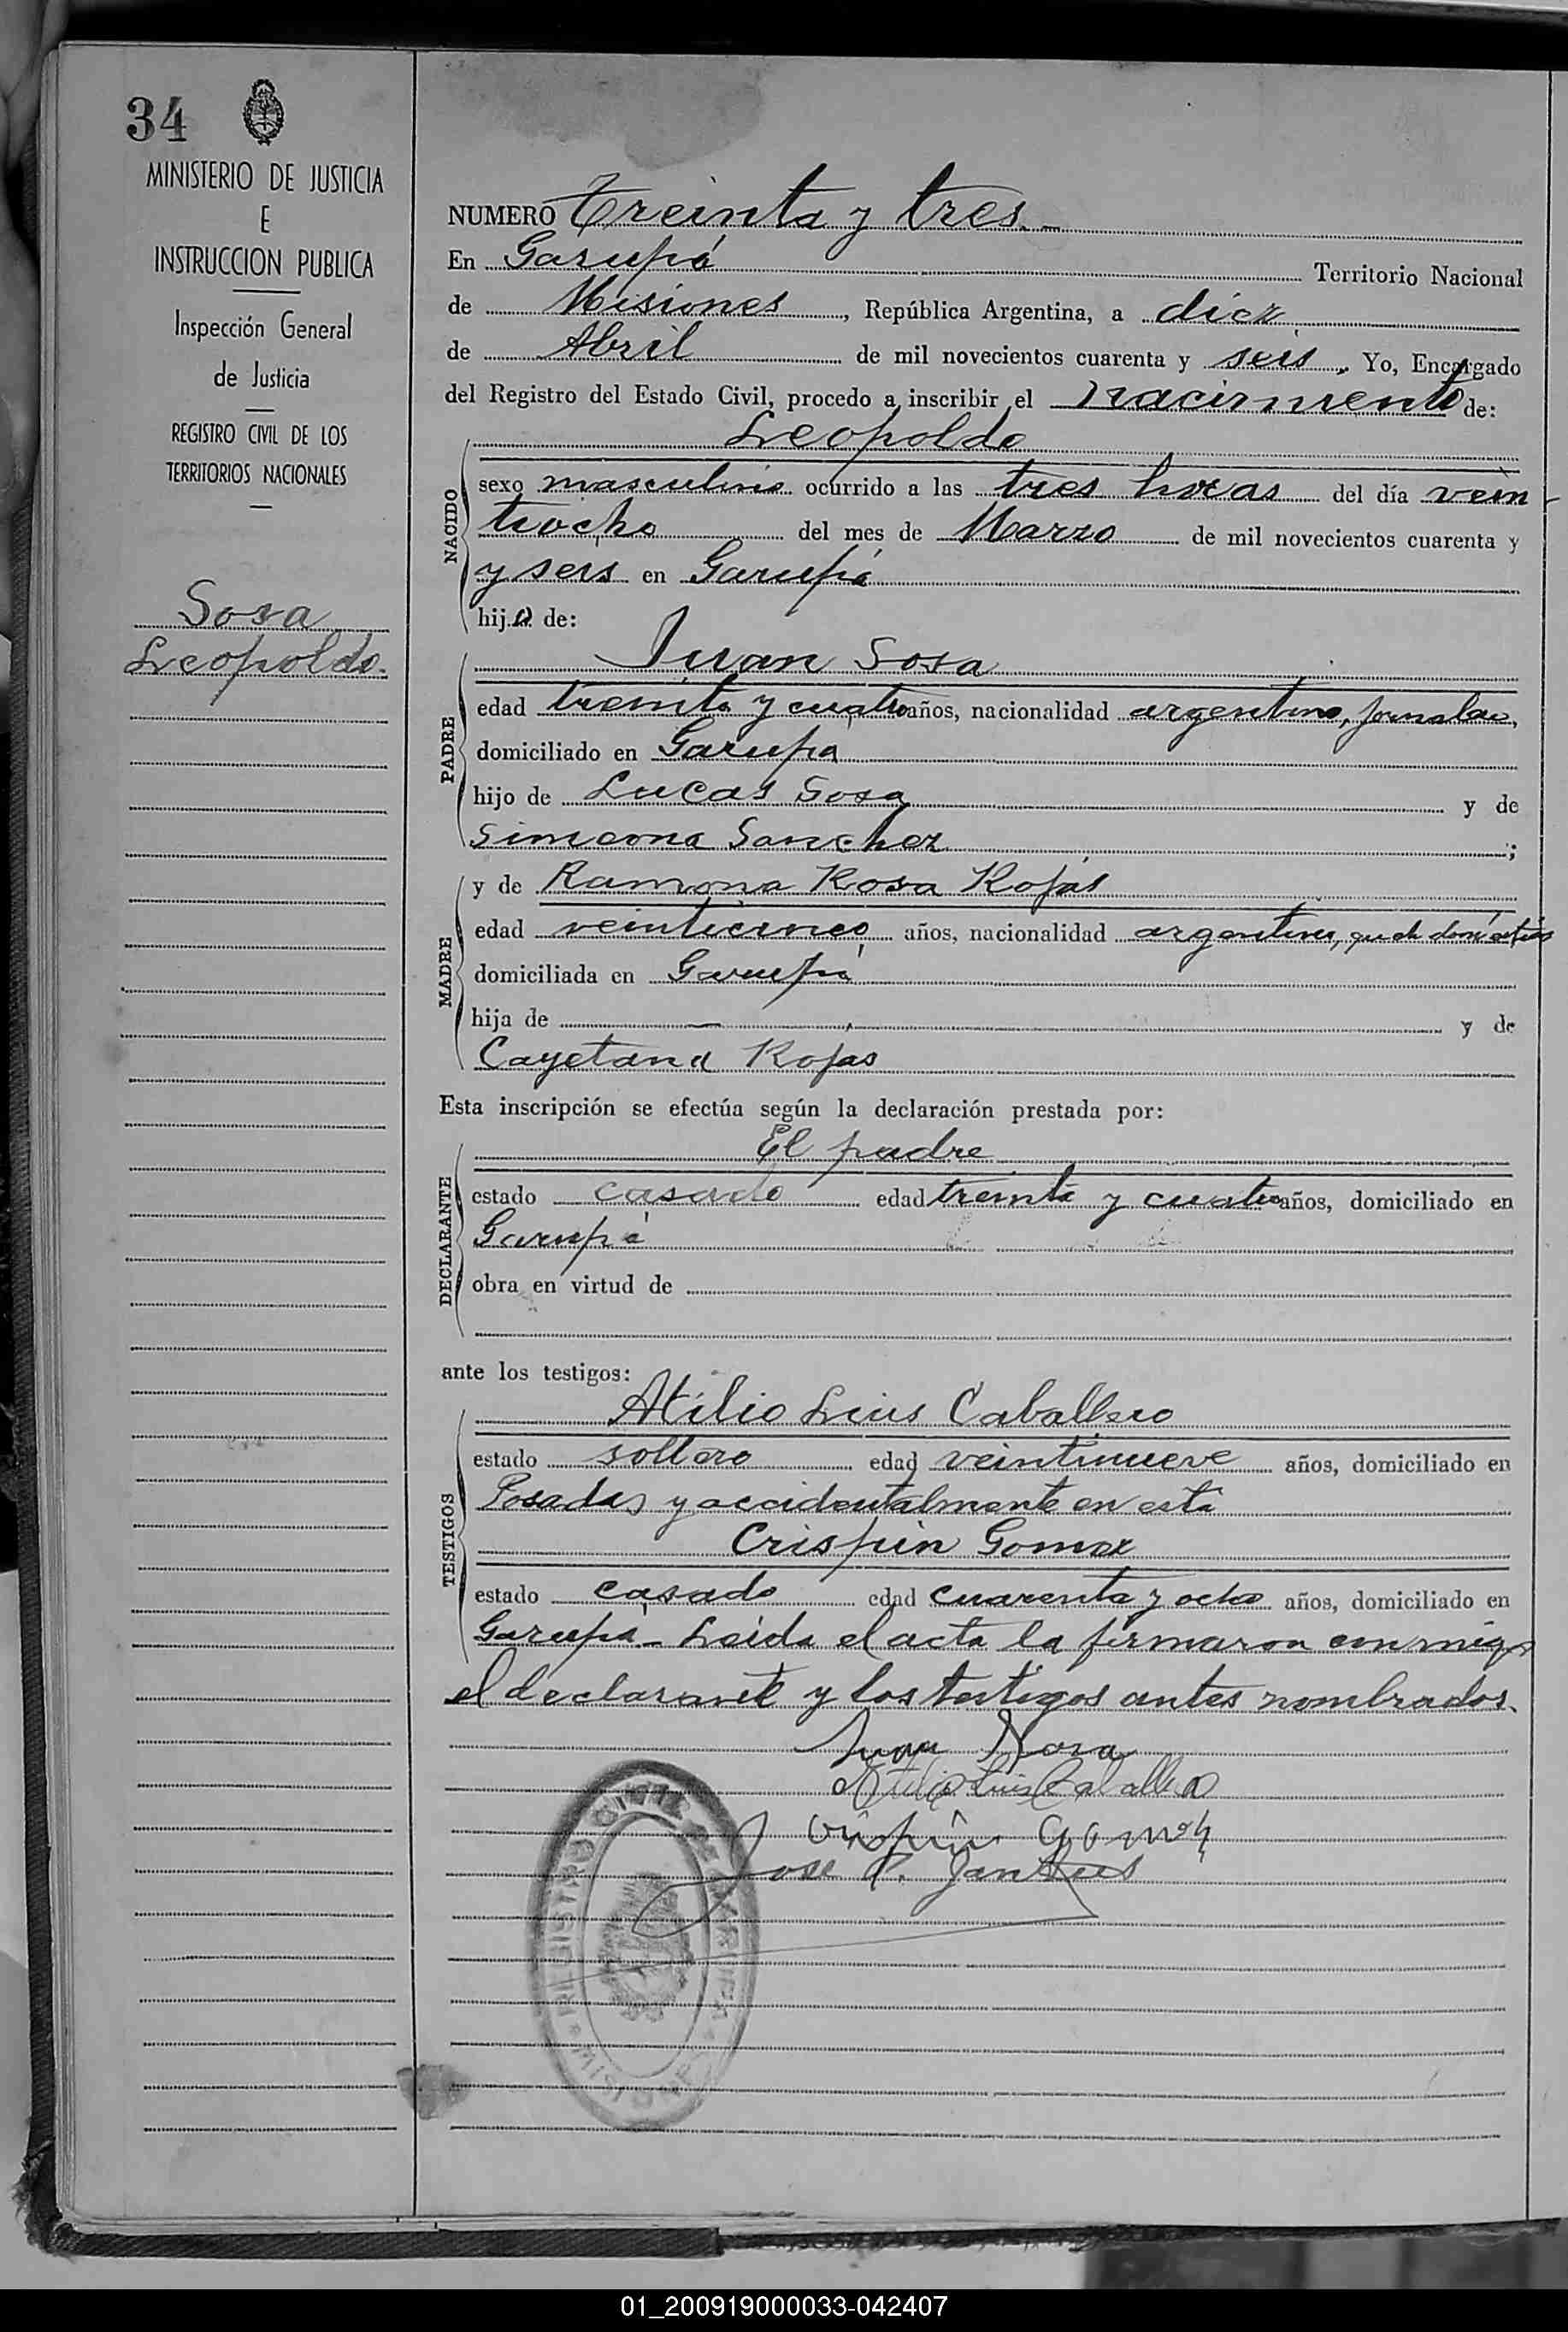 34
MINISTERIO DE JUSTICIA
E
INSTRUCCION PUBLICA
Inspección General
de Justicia
REGISTRO CIVIL DE LOS
TERRITORIOS NACIONALES
Sosa
Leopoldo.
NUMERO Treinta y tres.
En Garupá Territorio Nacional
de Misiones, República Argentina, a diez
de Abril de mil novecientos cuarenta y seis. Yo, Encargado
del Registro del Estado Civil, procedo a inscribir el nacimiento de:
Leopoldo
NACIDO
sexo masculino ocurrido a las tres horas del día vein-
tiocho del mes de Marzo de mil novecientos cuarenta y
y seis en Garupá
hijo de:
Juan Sosa
PADRE
edad treinta y cuatro años, nacionalidad argentino, jornalero,
domiciliado en Garupá
hijo de Lucas Sosa y de
Simeona Sanchez;
MADRE
y de Ramona Rosa Rojas
edad veinticinco años, nacionalidad argentina, queh domésticos
domiciliada en Garupá
hija de — y de
Cayetana Rojas
Esta inscripción se efectúa según la declaración prestada por:
El padre
DECLARANTE
estado casado edad treinta y cuatro años, domiciliado en
Garupá
obra en virtud de
ante los testigos:
Atilio Luis Caballero
TESTIGOS
estado soltero edad veintinueve años, domiciliado en
Posadas y accidentalmente en esta
Crispin Gomez
estado casado edad cuarenta y ocho años, domiciliado en
Garupá - Leída el acta la firmaron conmigo
el declarante y los testigos antes nombrados.
Juan Sosa
Atilio Luis Caballero
Crispin Gomez
Jose
01_200919000033-042407